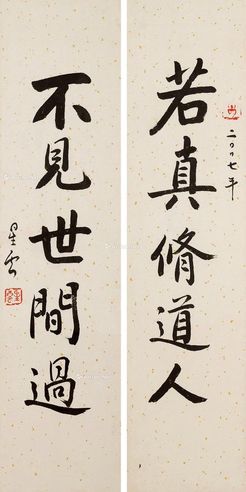 若真脩道人
二〇〇七年
不見世間過
星雲